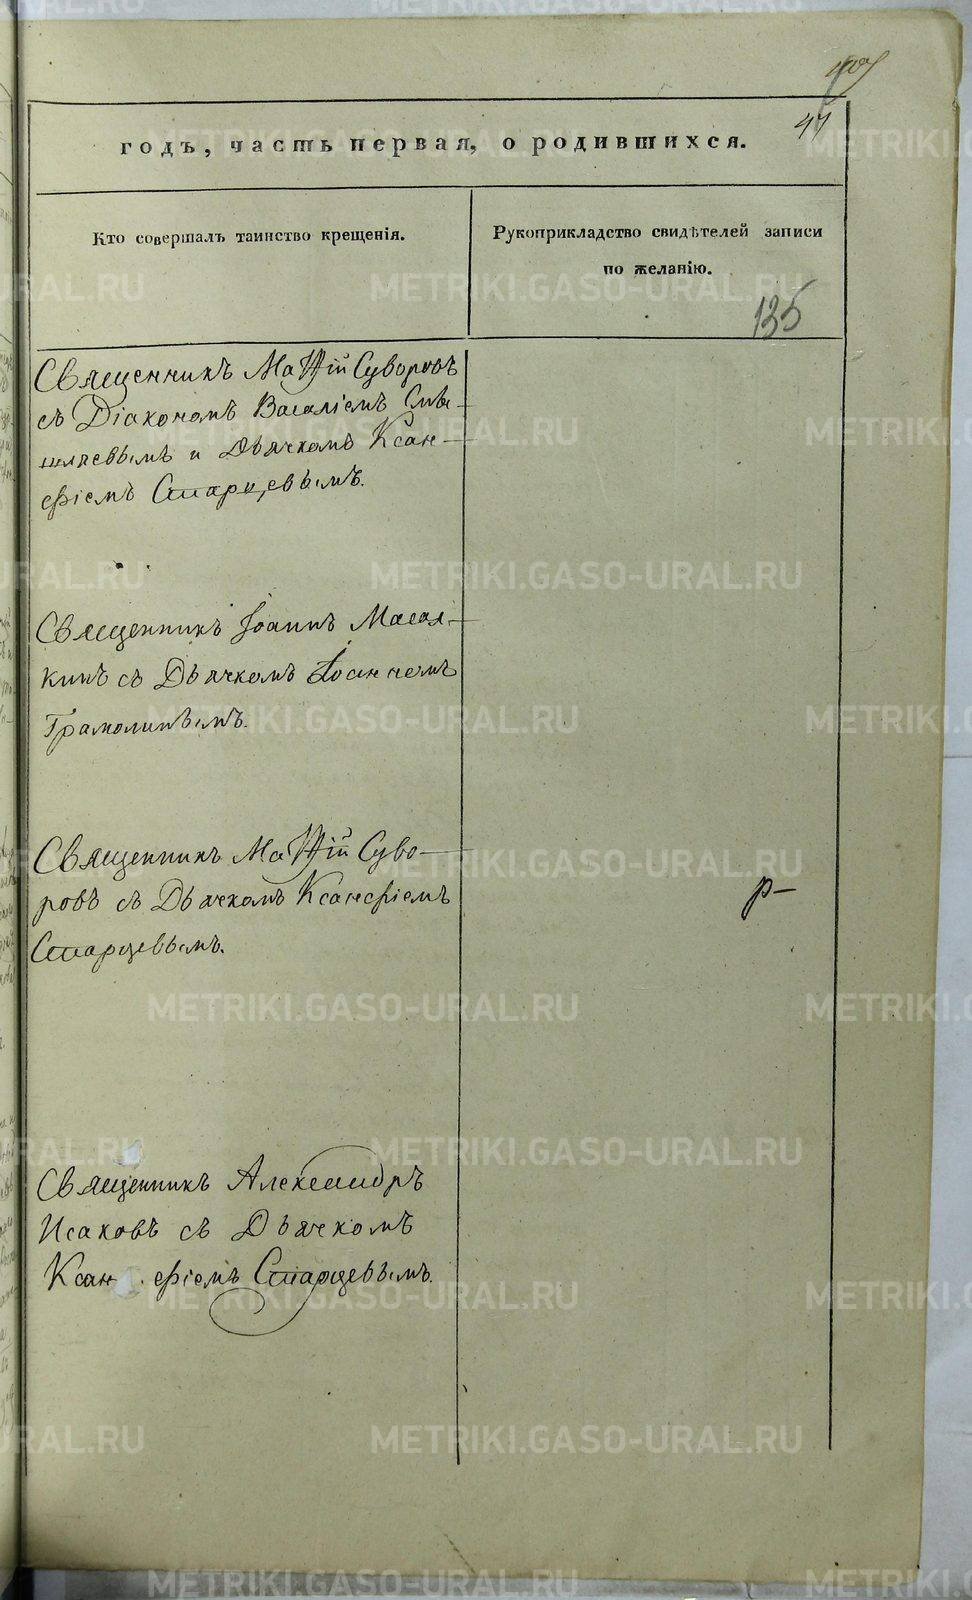 47
годъ, часть первая, о родившихся.
Кто совершалъ таинство крещенія.
Рукоприкладство свидѣтелей записи
по желанію.
135
Священникъ Матѳій Суворовъ
съ Діакономъ Василіемъ Смы-
шляевымъ и Дьячкомъ Ксан-
фіемъ Старцевымъ.
Священникъ Іоаннъ Масал-
кинъ съ Дьячкомъ Іоанномъ
Грамолинымъ.
Священникъ Матѳій Суво-
ровъ съ Дьячкомъ Ксанфіемъ
Старцевымъ.
р-
Священникъ Александръ
Исаковъ съ Дьячкомъ
Ксанфіемъ Старцевымъ.
METRIKI.GASO-URAL.RU